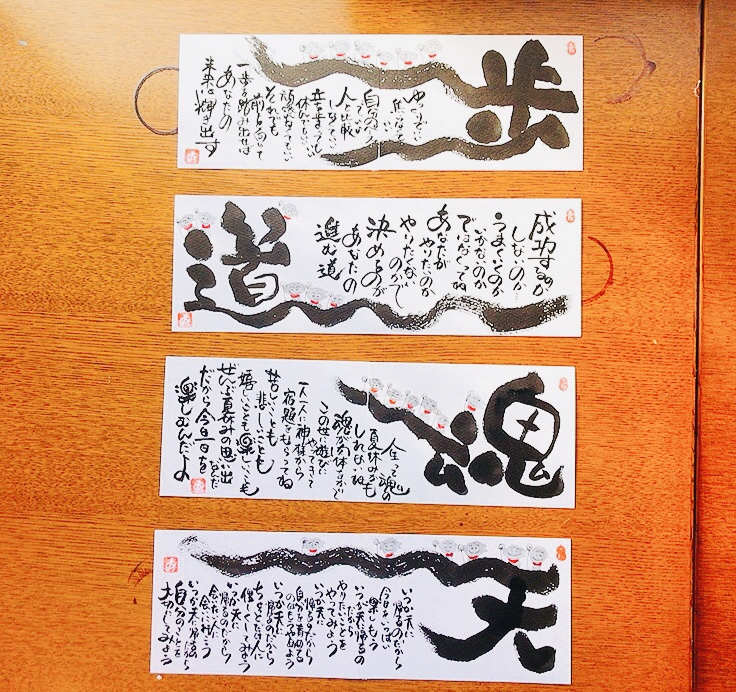 歩
ゆっくりでいい
自分の
人と比較
しなくていい
立ち止まっても
休んでもいい
頑張らなくていい
それでも
前を向いて
一歩を踏み出せば
あなたの
未来は輝き出す
成功するのか
しないのか…
うまくいくのか
いかないのか
ではなくってね
あなたが
やりたいのか
やりたくない
のかで
決めるのが
あなたの
進む道
道
魂
人生って魂の
夏休みかも
しれないね
魂が肉体をかりて
この世に遊びに
やってきて
一人一人に神様から
宿題をもらってね
苦しいことも
悲しいことも
嬉しいことも楽しいことも
ぜんぶ夏休みの思い出
なんだ
だから今日一日を
楽しむんだよ
天
いつか天に
帰るのだから
今日をいっぱい
楽しもう
いつか天に帰るの
だから
やりたいことを
やってみよう
いつか天に
帰るのだから
自分を責めるの
なんてやめよう
いつか天に
帰るのだから
ちょっとだけ人に
優しくしてみよう
いつか天に
帰るのだから
会いたい人に
会いに行こう
いつか天に帰るのだから
自分のことを
大切にしてみよう